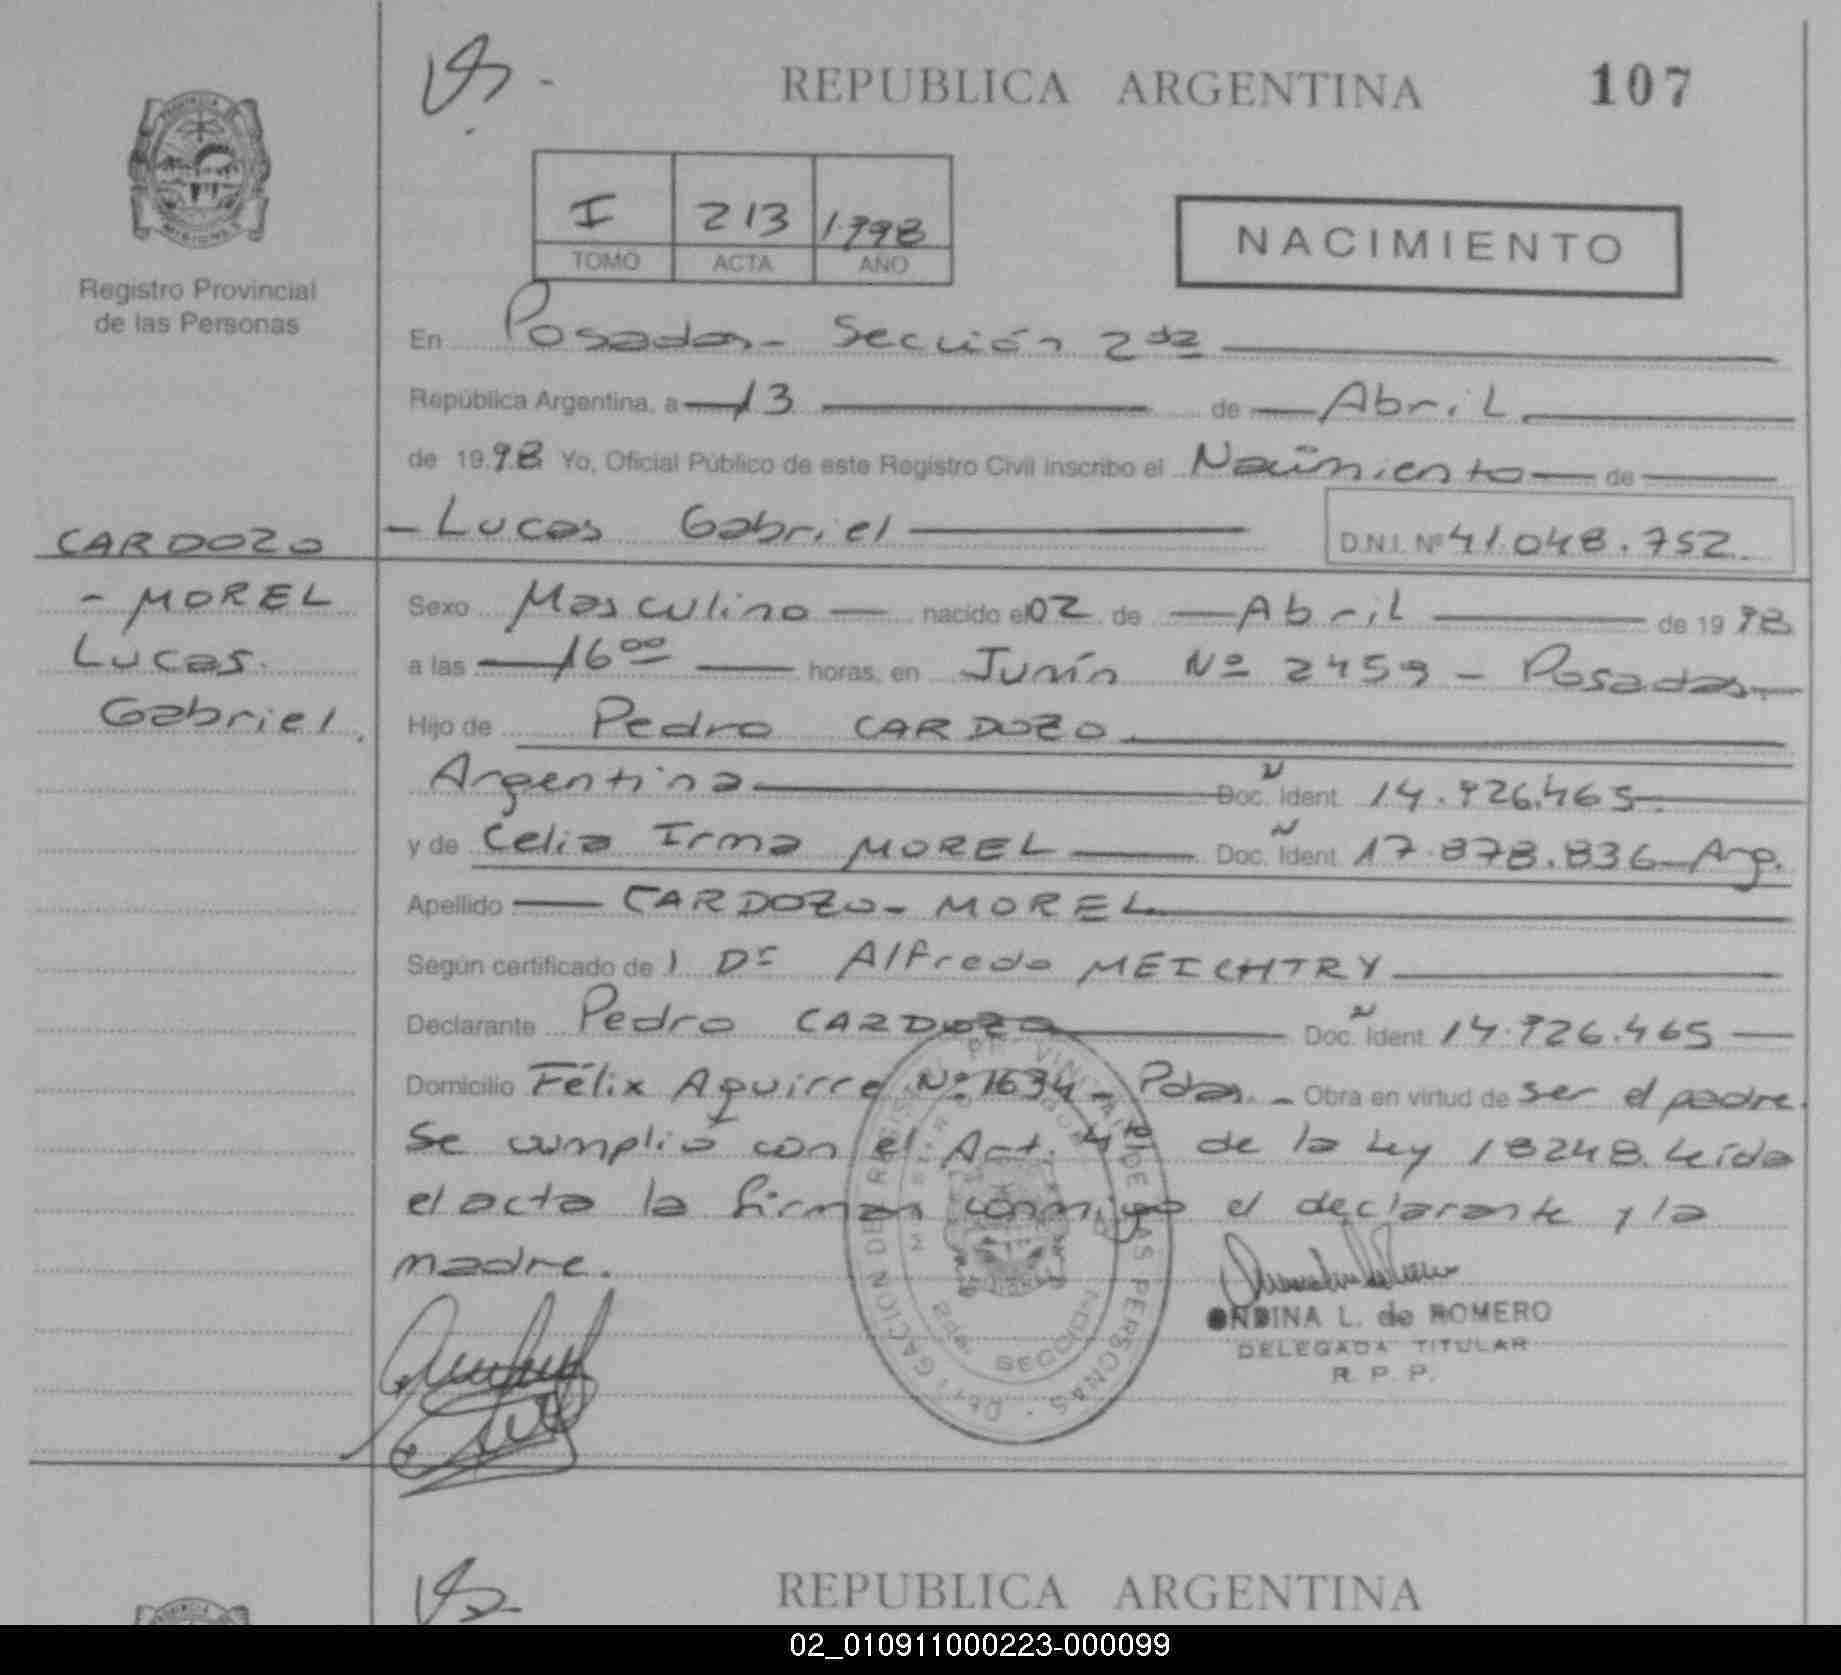 REPUBLICA ARGENTINA
107
PROVINCIA
MISIONES
Registro Provincial
de las Personas
I 213 1.998
TOMO ACTA AÑO
NACIMIENTO
En Posadas - Sección 2da
República Argentina, a 13 de Abril
de 1998 Yo, Oficial Público de este Registro Civil inscribo el Nacimiento de
- Lucas Gabriel D.N.I. Nº 41.048.752
CARDOZO
- MOREL
Lucas
Gabriel.
Sexo Masculino nacido el 02 de Abril de 1998
a las 16 00 horas, en Junín Nº 2459 - Posadas
Hijo de Pedro CARDOZO
Argentina Doc. Ident. 14.926.465
y de Celia Irma MOREL Doc. Ident. 17.878.836 Arg.
Apellido CARDOZO - MOREL
Según certificado de 1 Dr Alfredo MEICHTRY
Declarante Pedro CARDOZO Doc. Ident. 14.926.465
Domicilio Félix Aguirre Nº 1634 - Pdas. - Obra en virtud de ser el padre.
Se cumplió con el Art. 4to de la Ley 18248. Leída
el acta la firman conmigo el declarante y la
madre.
ONDINA L. de ROMERO
DELEGADA TITULAR
R. P. P.
REPUBLICA ARGENTINA
02_010911000223-000099